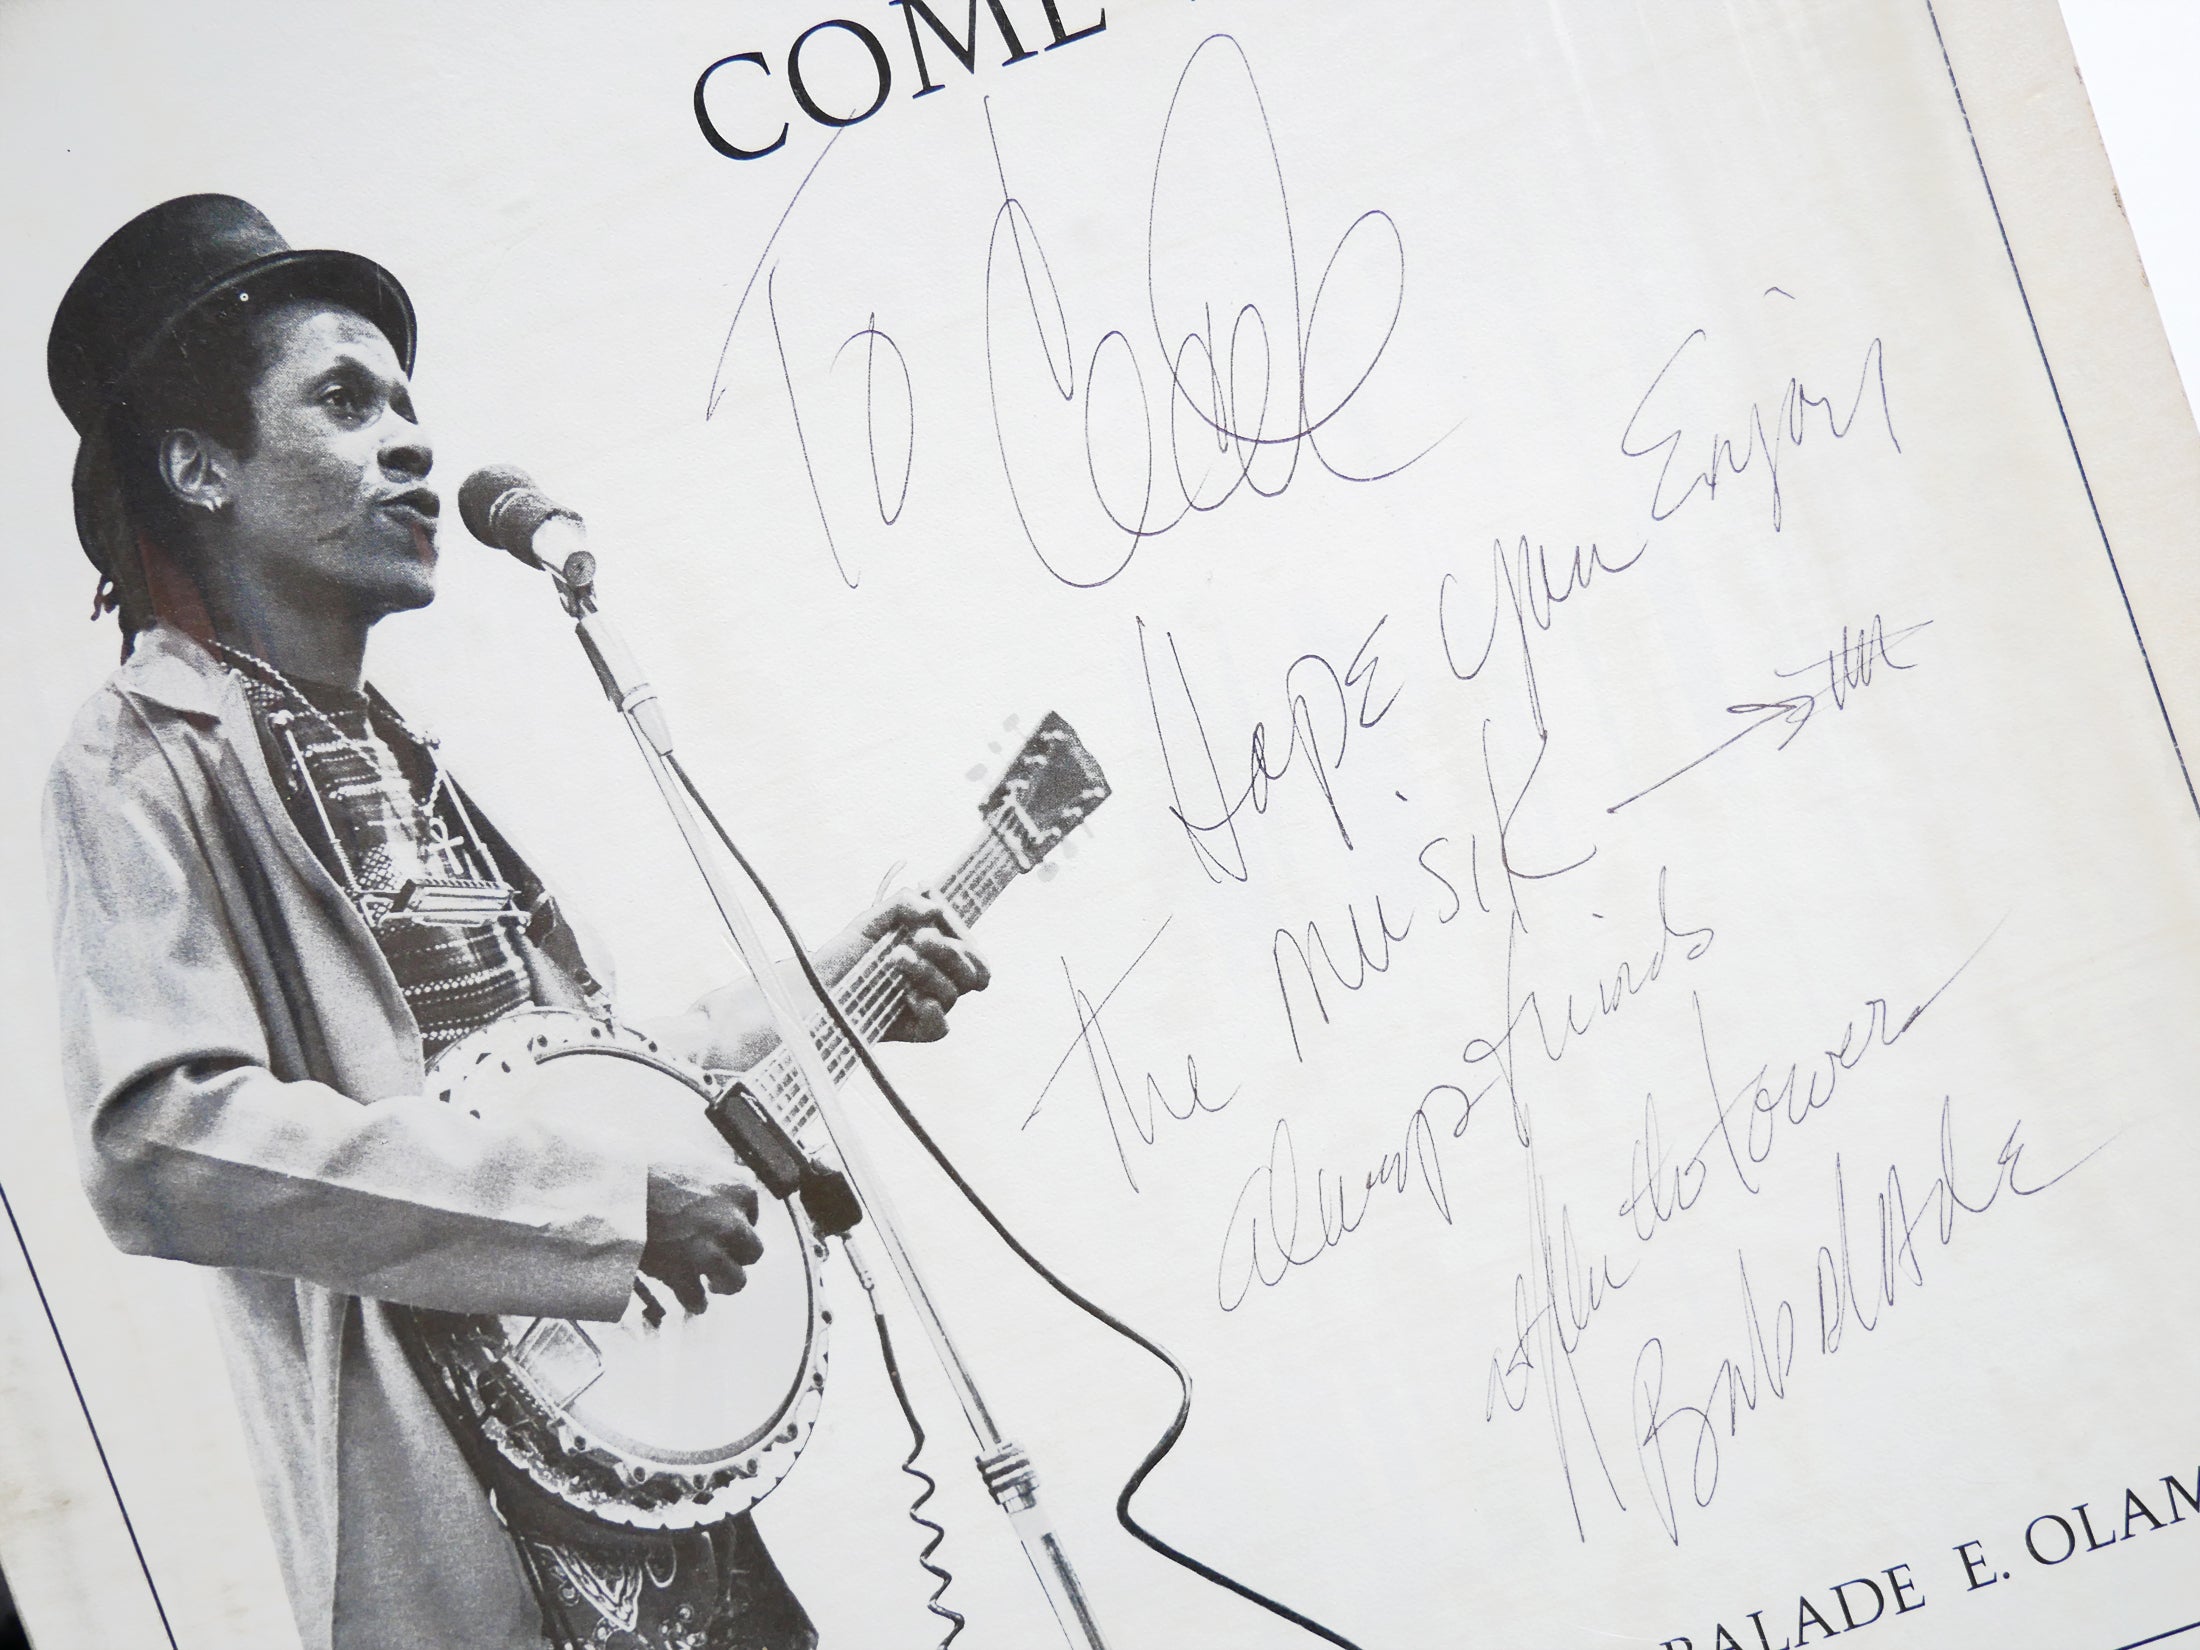 COME
To
Hope you Enjoy
the musik
always friends
Babalade
BALADE E. OLAM